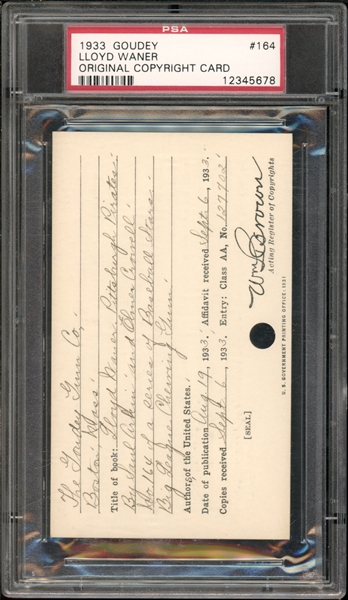 PSA
1933 GOUDEY #164
LLOYD WANER
ORIGINAL COPYRIGHT CARD 12345678
The Goudey Gum Co.,
Boston, Mass.
Title of book: Lloyd Waner, Pittsburgh Pirates.
By and Elmer Crowell.
No 164 of a series of Baseball Stars.
Big League Chewing Gum.
Author of the United States.
Date of publication Aug 17, 1933. Affidavit received Sept. 6, 1933.
Copies received Sept 6, 1933. Entry: Class AA, No. 127702.
[SEAL]
Wm L Brown
Acting Register of Copyrights
U. S. GOVERNMENT PRINTING OFFICE: 1931